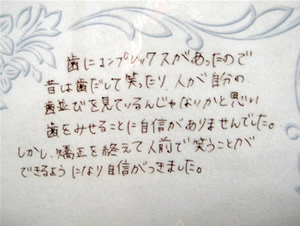 歯にコンプレックスがあったので
昔は歯だして笑ったり、人が自分の
歯並びを見ているんじゃないかと思い
歯をみせることに自信がありませんでした。
しかし、矯正を終えて人前で笑うことが
できるようになり自信がつきました。